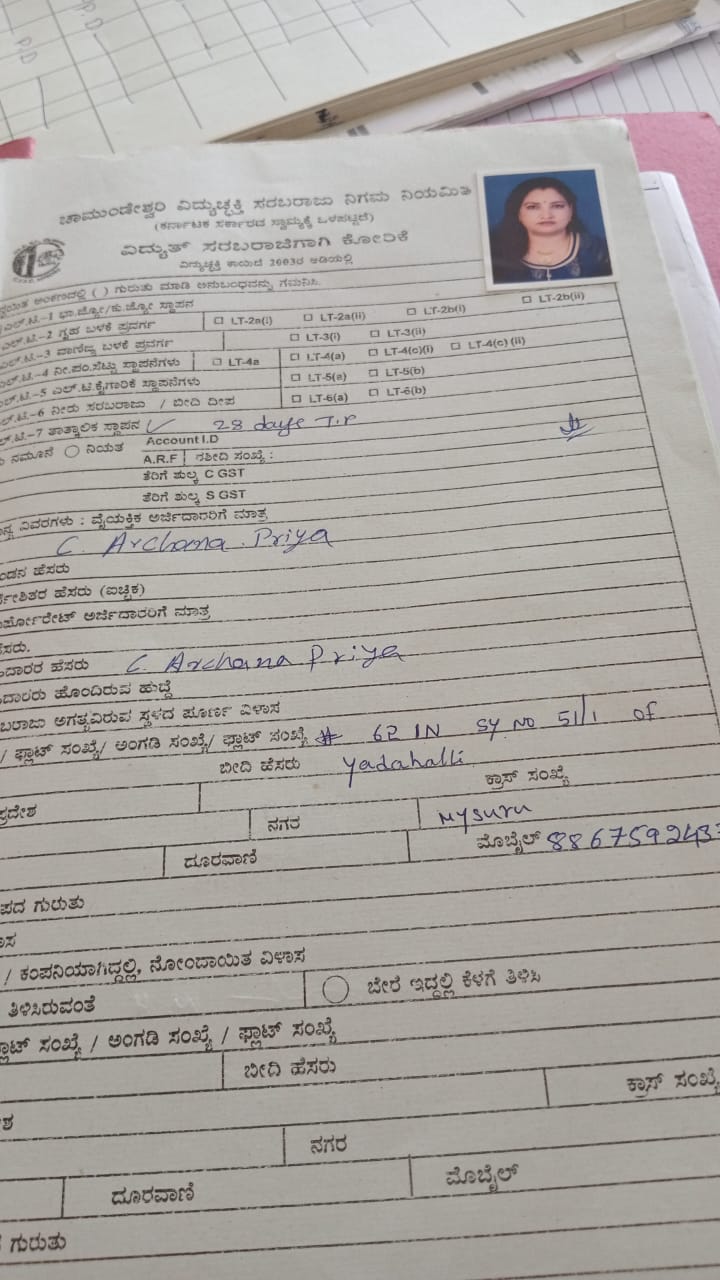 ಚಾಮುಂಡೇಶ್ವರಿ ವಿದ್ಯುಚ್ಛಕ್ತಿ ಸರಬರಾಜು ನಿಗಮ ನಿಯಮಿತ
(ಕರ್ನಾಟಕ ಸರ್ಕಾರದ ಸ್ವಾಮ್ಯಕ್ಕೆ ಒಳಪಟ್ಟಿದೆ)
ವಿದ್ಯುತ್ ಸರಬರಾಜಿಗಾಗಿ ಕೋರಿಕೆ
ವಿದ್ಯುಚ್ಛಕ್ತಿ ಕಾಯಿದೆ 2003ರ ಅಡಿಯಲ್ಲಿ
ಅಂಕಣದಲ್ಲಿ ( ) ಗುರುತು ಮಾಡಿ ಅನುಬಂಧವನ್ನು ಗಮನಿಸಿ.
ಎಲ್.ಟಿ.-1 ಭಾ.ಜ್ಯೋ/ಕು.ಜ್ಯೋ ಸ್ಥಾಪನ
ಎಲ್.ಟಿ.-2 ಗೃಹ ಬಳಕೆ ಪ್ರವರ್ಗ □ LT-2a(i) □ LT-2a(ii) □ LT-2b(i) □ LT-2b(ii)
ಎಲ್.ಟಿ.-3 ವಾಣಿಜ್ಯ ಬಳಕೆ ಪ್ರವರ್ಗ □ LT-3(i) □ LT-3(ii)
ಎಲ್.ಟಿ.-4 ನೀ.ಪಂ.ಸೆಟ್ಟು ಸ್ಥಾಪನೆಗಳು □ LT-4a □ LT-4(a) □ LT-4(c)(i) □ LT-4(c) (ii)
ಎಲ್.ಟಿ.-5 ಎಲ್.ಟಿ.ಕೈಗಾರಿಕೆ ಸ್ಥಾಪನೆಗಳು □ LT-5(a) □ LT-5(b)
ಎಲ್.ಟಿ.-6 ನೀರು ಸರಬರಾಜು / ಬೀದಿ ದೀಪ □ LT-6(a) □ LT-6(b)
ಲ್.ಟಿ.-7 ತಾತ್ಕಾಲಿಕ ಸ್ಥಾಪನ ✓ 28 days T.P
ನಮೂನೆ ○ ನಿಯತ Account I.D
A.R.F ರಶೀದಿ ಸಂಖ್ಯೆ :
ತೆರಿಗೆ ಶುಲ್ಕ C GST
ತೆರಿಗೆ ಶುಲ್ಕ S GST
ವಿವರಗಳು : ವೈಯಕ್ತಿಕ ಅರ್ಜಿದಾರರಿಗೆ ಮಾತ್ರ
C. Archana Priya
ಂಡನ ಹೆಸರು
ರ್ದೇಶಿತರ ಹೆಸರು (ಐಚ್ಛಿಕ)
ರ್ಪೋರೇಟ್ ಅರ್ಜಿದಾರರಿಗೆ ಮಾತ್ರ
ಸರು.
ದಾರರ ಹೆಸರು C. Archana Priya
ದಾರರು ಹೊಂದಿರುವ ಹುದ್ದೆ
ಬರಾಜು ಅಗತ್ಯವಿರುವ ಸ್ಥಳದ ಪೂರ್ಣ ವಿಳಾಸ
/ ಪ್ಲಾಟ್ ಸಂಖ್ಯೆ/ ಅಂಗಡಿ ಸಂಖ್ಯೆ/ ಫ್ಲಾಟ್ ಸಂಖ್ಯೆ # 62 IN SY NO 51/1 of
ಬೀದಿ ಹೆಸರು Yadahalli
ಪ್ರದೇಶ ಕ್ರಾಸ್ ಸಂಖ್ಯೆ
ನಗರ Mysuru
ದೂರವಾಣಿ ಮೊಬೈಲ್ 886759243
ಪದ ಗುರುತು
ಾಸ
/ ಕಂಪನಿಯಾಗಿದ್ದಲ್ಲಿ, ನೋಂದಾಯಿತ ವಿಳಾಸ
ತಿಳಿಸಿರುವಂತೆ ○ ಬೇರೆ ಇದ್ದಲ್ಲಿ ಕೆಳಗೆ ತಿಳಿಸಿ
ಲಾಟ್ ಸಂಖ್ಯೆ / ಅಂಗಡಿ ಸಂಖ್ಯೆ / ಫ್ಲಾಟ್ ಸಂಖ್ಯೆ
ಬೀದಿ ಹೆಸರು
ಶ ಕ್ರಾಸ್ ಸಂಖ್ಯೆ
ನಗರ
ದೂರವಾಣಿ ಮೊಬೈಲ್
ಗುರುತು